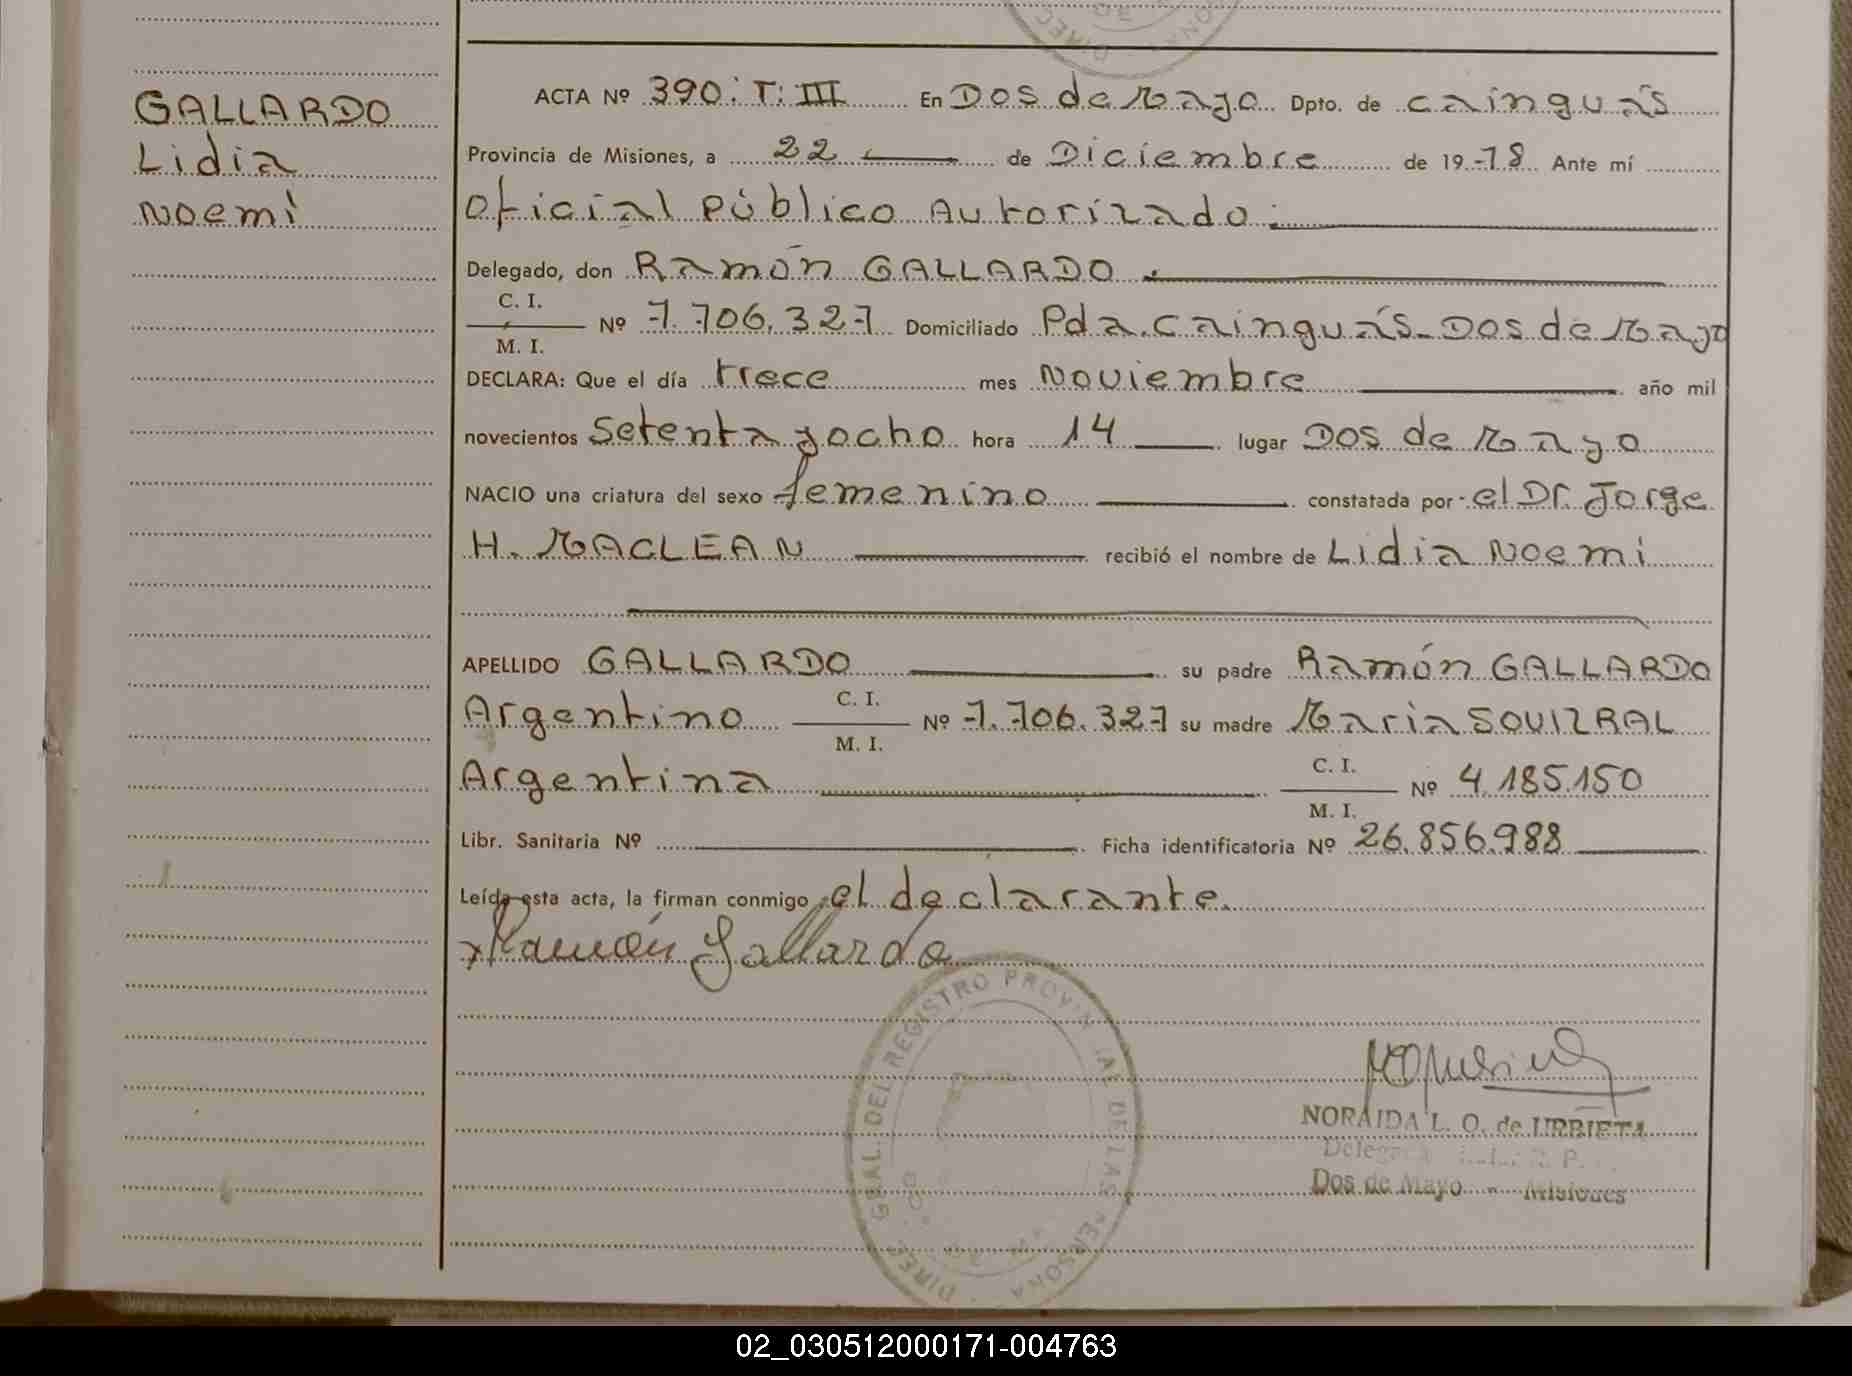 GALLARDO
Lidia
Noemí
ACTA Nº 390. T: III En Dos de Mayo Dpto. de Cainguás
Provincia de Misiones, a 22 de Diciembre de 19 78 Ante mí
Oficial Público Autorizado.
Delegado, don Ramón GALLARDO.
C. I.
M. I. Nº 7.706.327 Domiciliado Pda. Cainguás - Dos de Mayo
DECLARA: Que el día trece mes Noviembre año mil
novecientos setenta y ocho hora 14 lugar Dos de Mayo
NACIO una criatura del sexo femenino constatada por el Dr. Jorge
H. MACLEAN recibió el nombre de Lidia Noemí
APELLIDO GALLARDO su padre Ramón GALLARDO
Argentino C. I. M. I. Nº 7.706.327 su madre María SOUIZRAL
Argentina C. I. M. I. Nº 4.185.150
Libr. Sanitaria Nº Ficha identificatoria Nº 26.856.988
Leída esta acta, la firman conmigo el declarante.
Ramón Gallardo
DIREC. GRAL. DEL REGISTRO PROVINCIAL DE LAS PERSONAS
NORAIDA L. O. de URRIETA
Dos de Mayo - Misiones
02_030512000171-004763